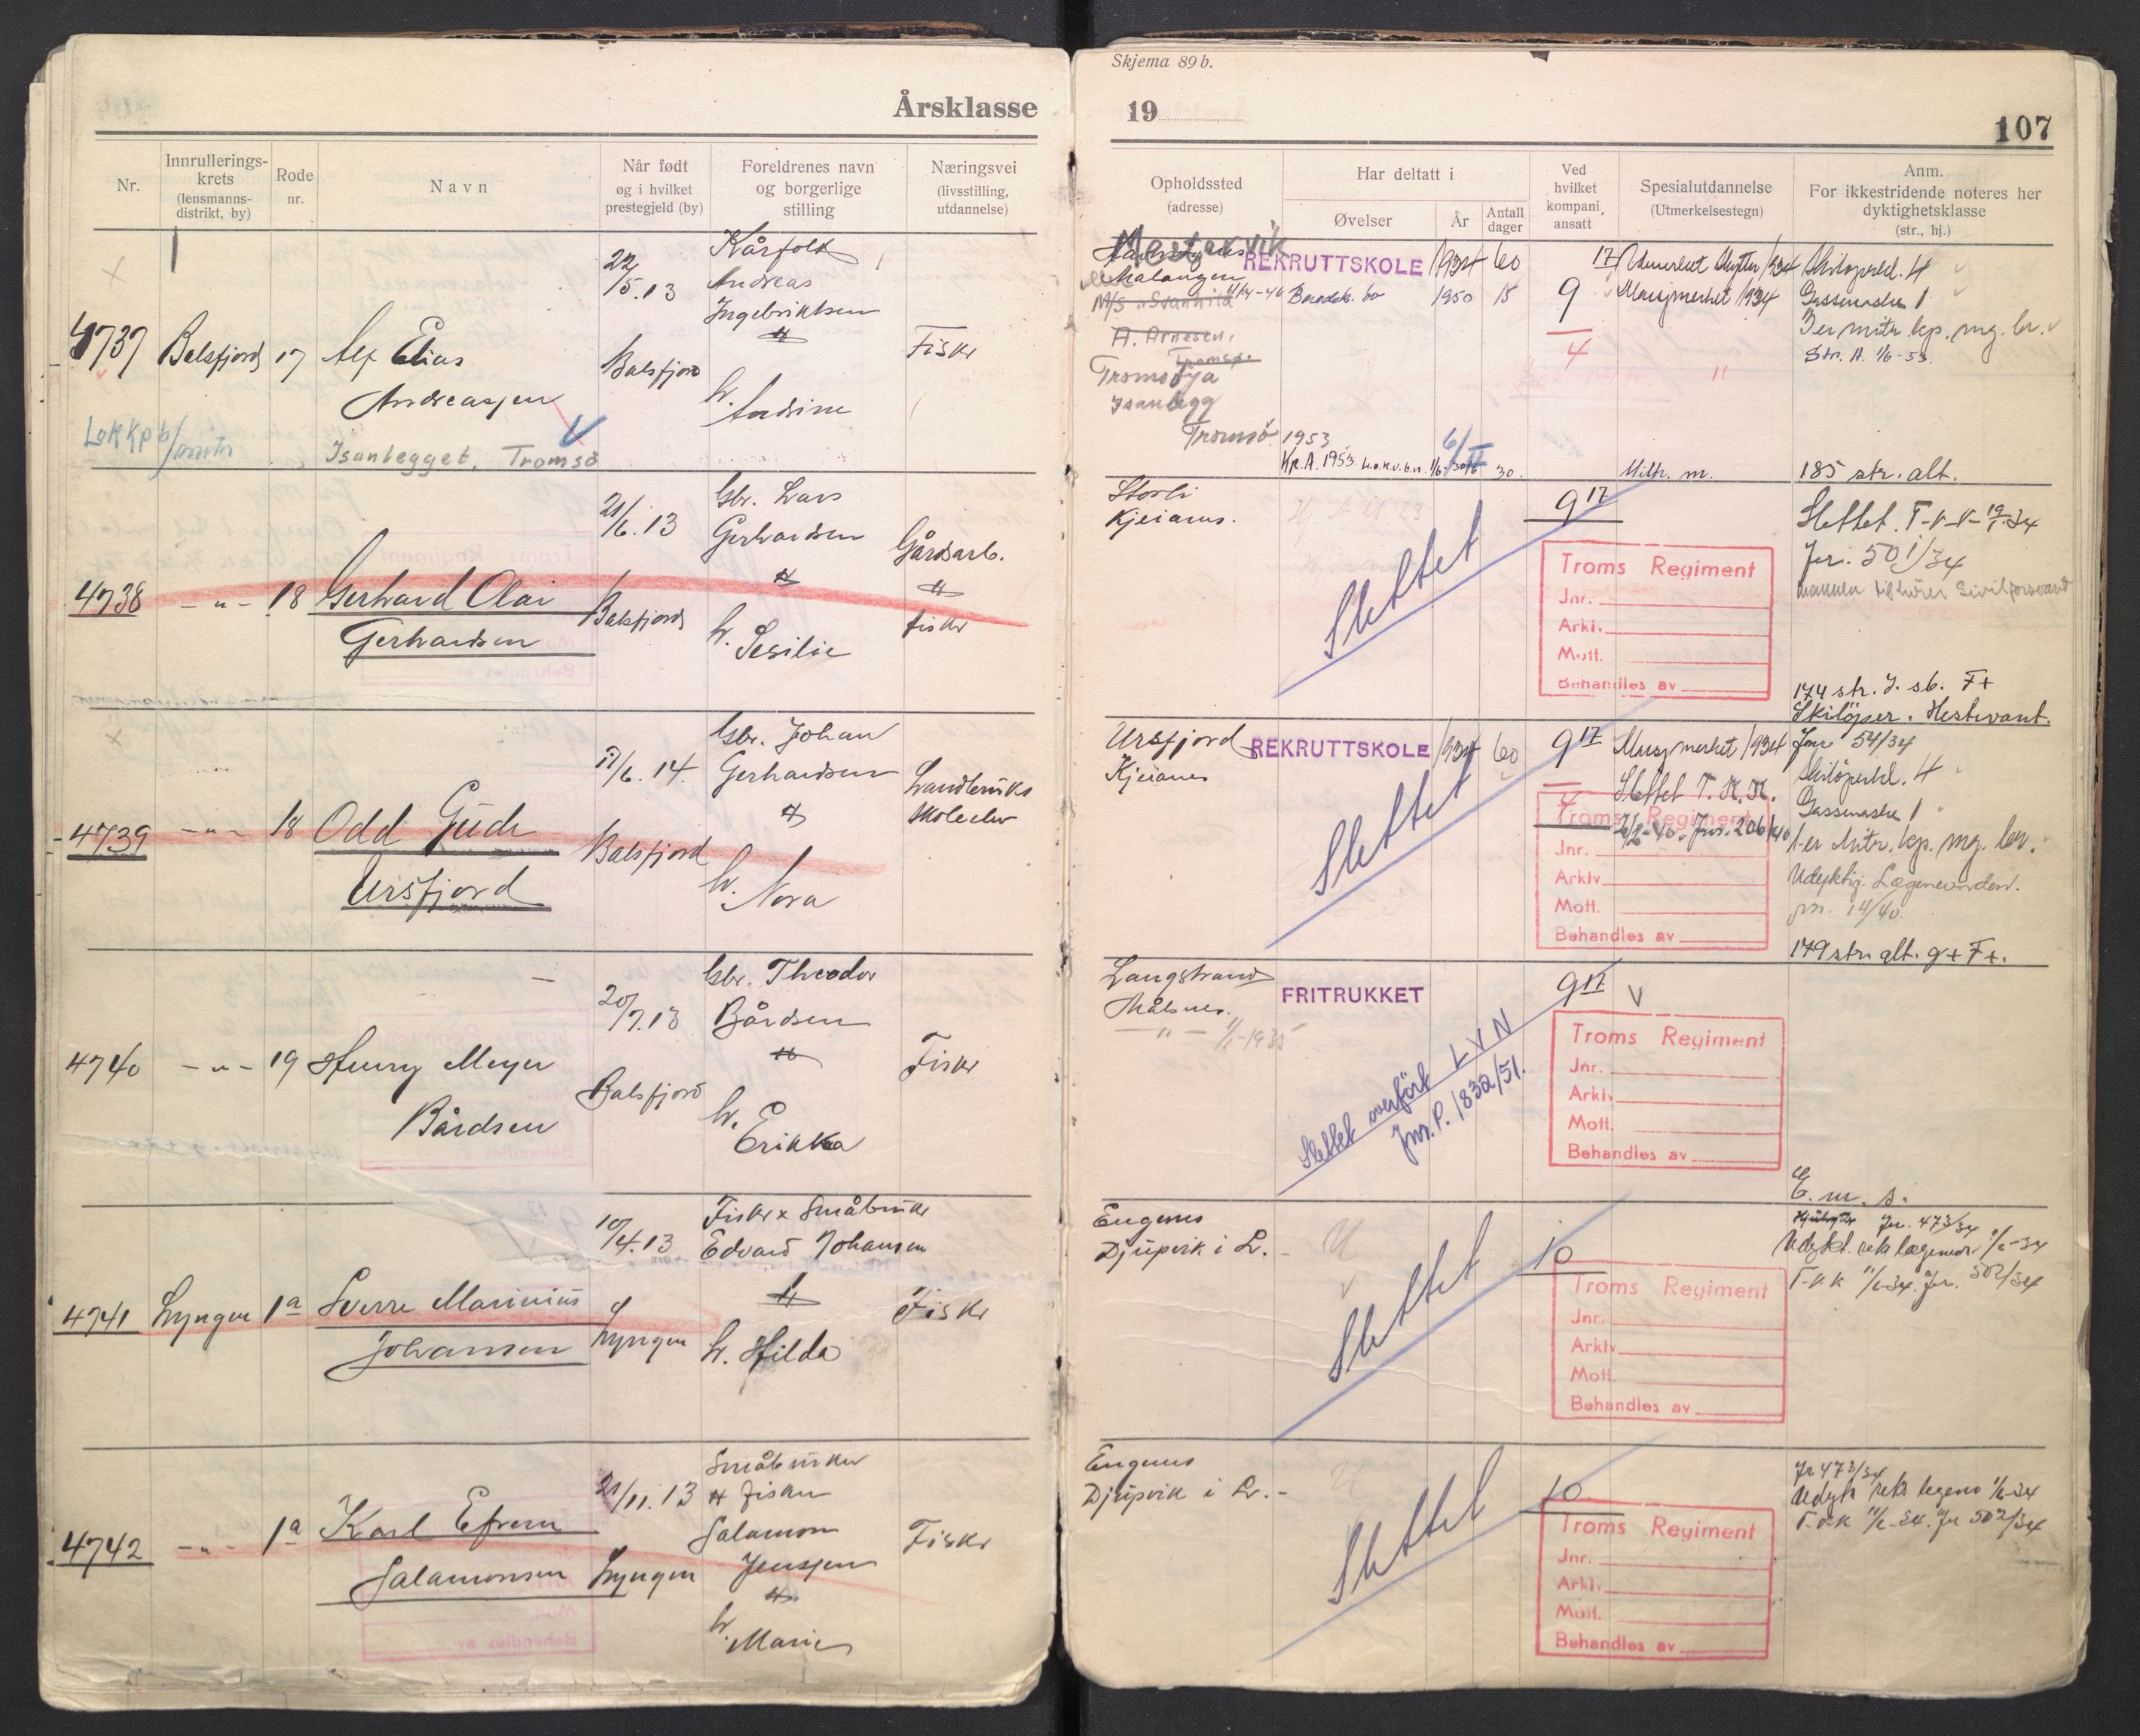 Årsklasse
Nr.
Innrullerings-
krets
(lensmanns-
distrikt, by)
Rode
nr.
Navn
Når født
og i hvilket
prestegjeld (by)
Foreldrenes navn
og borgerlige
stilling
Næringsvei
(livsstilling,
utdannelse)
4737 Balsfjord 17 Alf Elias
Andreassen
22/5.13
Balsfjord
Kårfolk
Andreas
Ingebriktsen
H.
Andrine
Fisker
Lok Kp b/
Isanlegget, Tromsø
4738 - " - 18 Gerhard Olai
Gerhardsen
21/6.13
Balsfjord
Gbr. Lars
Gerhardsen
H.
Sesilie
Gårdsarb.
fisker
4739 - " - 18 Odd Gude
Ursfjord
17/6.14.
Balsfjord
Gbr. Johan
Gerhardsen
H.
Nora
Landbruks
skoleelev
4740 - " - 19 Henry Meyer
Bårdsen
20/7.13
Balsfjord
Gbr. Theodor
Bårdsen
H.
Erikka
Fisker
4741 Lyngen 1a Sverre Marinius
Johansen
10/4.13
Lyngen
Fisker x Småbruker
Edvard Johansen
H. Hilda
Fisker
4742 - " - 1a Karl Efrem
Salamonsen
21/11.13
Lyngen
Småbruker
fisker
Salamon
Jenssen
H.
Marie
Fisker
Skjema 89 b.
19
107
Opholdssted
(adresse)
Har deltatt i
Øvelser
År
Antall
dager
Ved
hvilket
kompani
ansatt
Spesialutdannelse
(Utmerkelsestegn)
Anm.
For ikkestridende noteres her
dyktighetsklasse
(str., hj.)
Mestervik
Malangen
M/S "Svanhild"
A. Arnesen,
Tromsø.
Tromsøya
Isanlegg
Tromsø
REKRUTTSKOLE 1934 60
1950 15
1953
Kp. A. 1953 30.
17
9
4
1934
1934
Miltr. m.
Skiløperkl. 4
Gassmaske 1
mitr. kp. mg. br.
Str. A. 1/6-53.
185 str. alt.
Storli
Slettet
9 17
Troms Regiment
Jnr.
Arkiv.
Mott.
Behandles av
Slettet. T-V-V- 19/1-34
Jnr. 501/34
mannen tilhører Sivilforsvaret
174 str. J. sb. F+
Skiløper. Hestevant.
Ursfjord
REKRUTTSKOLE 1934 60
Slettet
9 17
4
1934
Slettet T. K. K.
6/2-40. Jnr. 206/40
Troms Regiment
Jnr.
Arkiv
Mott.
Behandles av
Jnr 54/34
Skiløperkl. 4
Gassmaske 1
1-er Mitr. kp. mg. br.
Udyktig. Lægenevnden.
jnr. 14/40.
179 str. alt. g+ F+.
Langstrand
Målsnes.
- " - 1/1-1935
FRITRUKKET
Slettet overført LVN
Jnr. P. 1832/51.
9 17
V
Troms Regiment
Jnr.
Arkiv
Mott.
Behandles av
E. m. s.
Eugenes
Djupvik i L.
Slettet
10
Troms Regiment
Jnr.
Arkiv
Mott.
Behandles av
Jnr. 473/34
Jnr. 502/34
Eugenes
Djupvik i L.
Slettet
10
Troms Regiment
Jnr.
Arkiv.
Mott.
Behandles av
Jr 473/34
Jnr 502/34